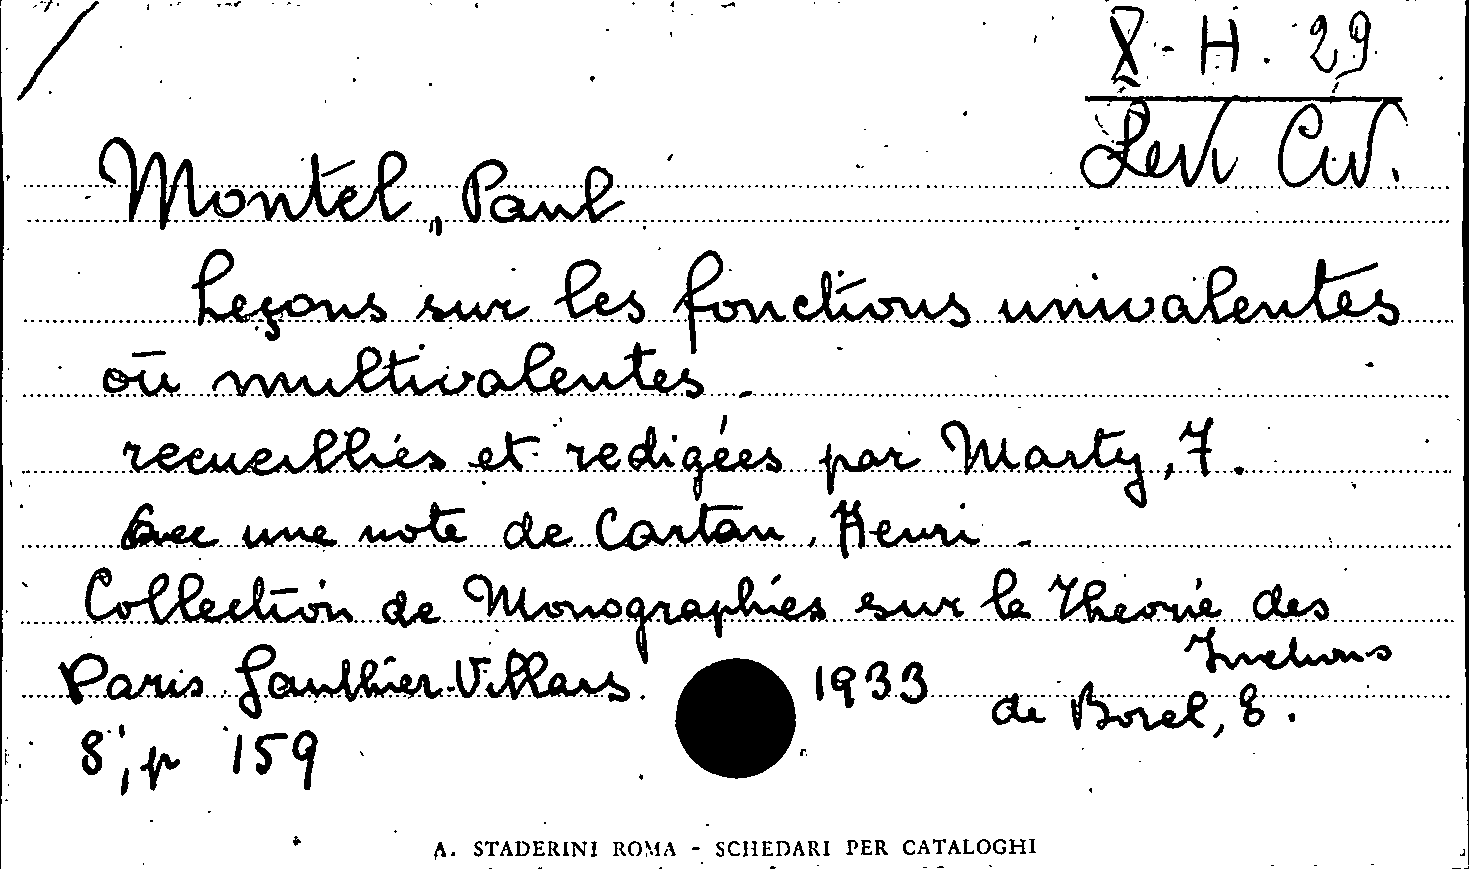 X - H. 29
Levi Civ.
Montel, Paul
Leçons sur les fonctions univalentes
ou multivalentes.
recueillies et redigées par Marty, F.
avec une note de Cartan, Henri -
Collection de Monographies sur la Theorie des
Fnctions
Paris Gauthier-Villars 1933
de Borel, E.
8°, p 159
A. STADERINI ROMA - SCHEDARI PER CATALOGHI